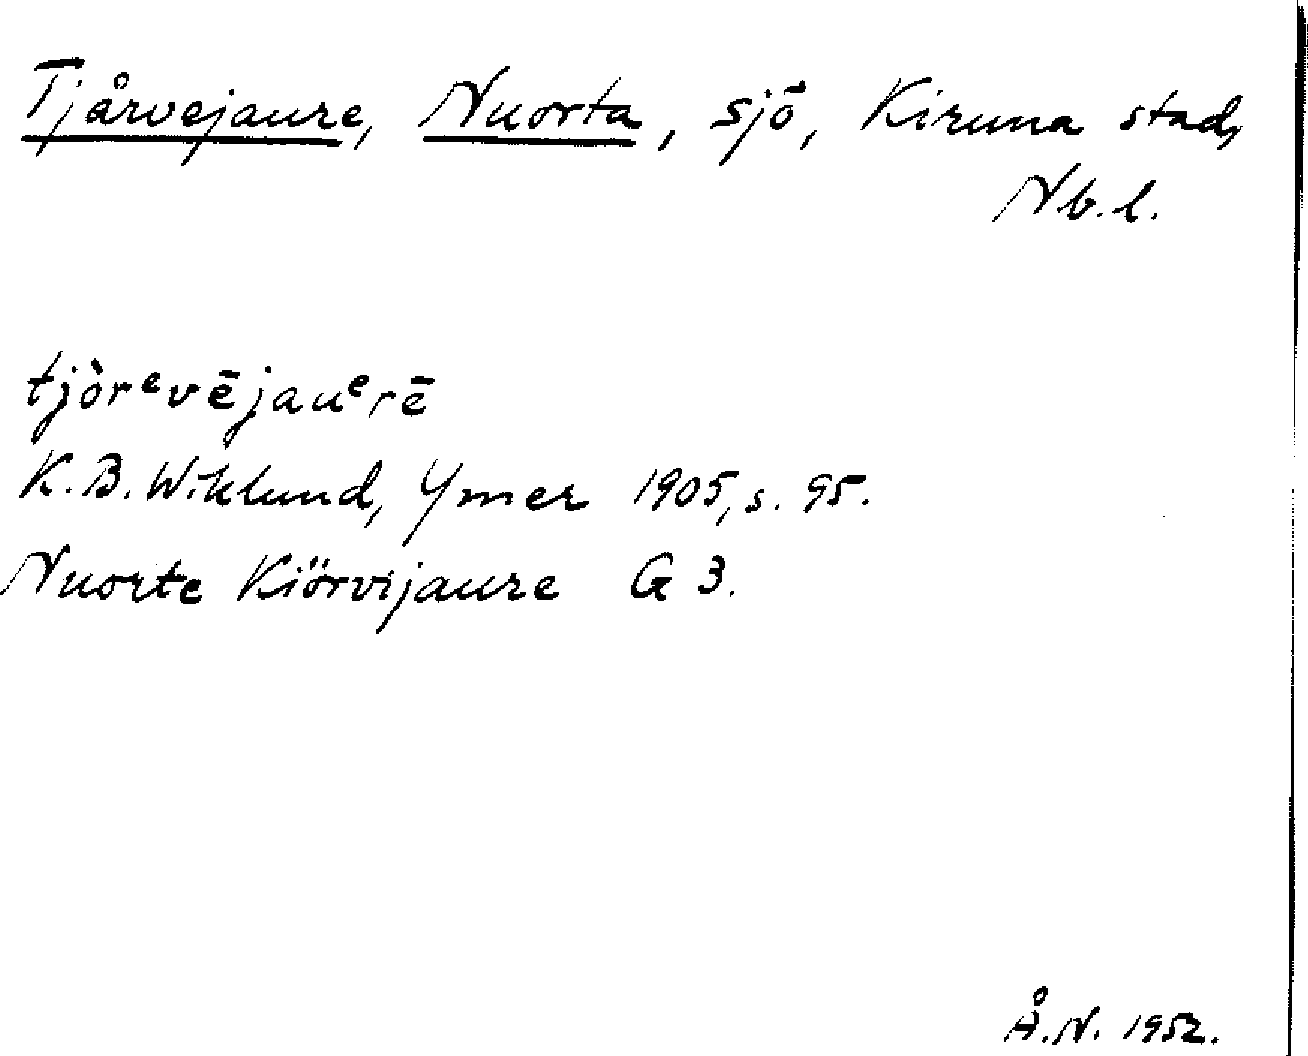 Tjårvejaure, Nuorta, sjö, Kiruna stad,
Nb.l.
tjòrᵉvējauᵉrē
K.B. Wiklund, Ymer 1905, s. 95.
Nuorte Kiörvijaure G 3.
Å.N. 1952.